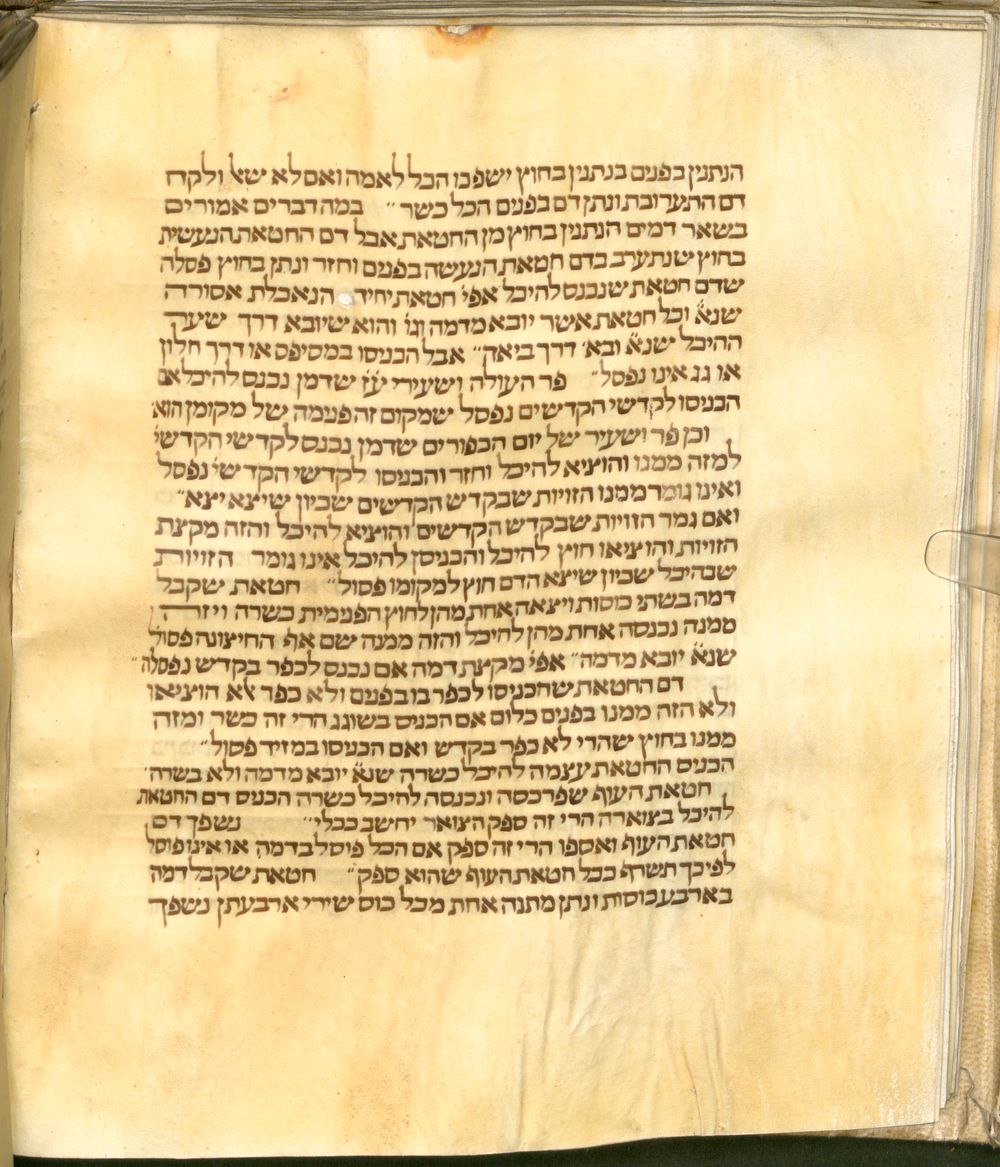 הנתנין בפנים בנתנין בחוץ ישפכו הכל לאמה ואם לא שאל ולקח
דם התערובת ונתן דם בפנים הכל כשר״ במה דברים אמורים
בשאר דמים הנתנין בחוץ מן החטאת אבל דם החטאת הנעשית
בחוץ שנתערב בדם חטאת הנעשה בפנים וחזר ונתן בחוץ פסלה
שדם חטאת שנכנס להיכל אפי׳ חטאת יחיד הנאכלת אסורה
שנא׳ וכל חטאת אשר יובא מדמה וגו׳ והוא שיובא דרך שער
ההיכל שנא׳ ובא׳ דרך ביאה״ אבל הכניסו במסיפס או דרך חלון
או גג אינו נפסל״ פר העולה ושעירי ע׳ז שדמן נכנס להיכל אם
הכניסו לקדשי הקדשים נפסל שמקום זה פנימה של מקומן הוא
וכן פר ושעיר של יום הכפורים שדמן נכנס לקדשי הקדשי׳
למזה ממנו והוציא להיכל וחזר והכניסו לקדשי הקדשי׳ נפסל
ואינו גומר ממנו הזויות שבקדש הקדשים שכיון שיצא יצא״
ואם גמר הזויות שבקדש הקדשים והוציא להיכל והזה מקצת
הזויות והוציאו חוץ להיכל והכניסן להיכל אינו גומר הזויות
שבהיכל שכיון שיצא הדם חוץ למקומו פסול״ חטאת שקבל
דמה בשתי כוסות ויצאה אחת מהן לחוץ הפנימית כשרה ויזרה
ממנה נכנסה אחת מהן להיכל והזה ממנה שם אף החיצונה פסול׳
שנא׳ יובא מדמה״ אפי׳ מקצת דמה אם נכנס לכפר בקדש נפסלה״
דם החטאת שהכניסו לכפר בו בפנים ולא כפר אלא הוציאו
ולא הזה ממנו בפנים כלום אם הכניס בשוגג הרי זה כשר ומזה
ממנו בחוץ שהרי לא כפר בקדש ואם הכניסו במזיד פסול״
הכניס החטאת עצמה להיכל כשרה שנא׳ יובא מדמה ולא בשרה׳
חטאת העוף שפרכסה ונכנסה להיכל כשרה הכניס דם החטאת
להיכל בצוארה הרי זה ספק הצואר יחשב ככלי״ נשפך דם
חטאת העוף ואספו הרי זה ספק אם הכל פוסל בדמה או אינו פוסל
לפיכך תשרף ככל חטאת העוף שהוא ספק״ חטאת שקבל דמה
בארבע כוסות ונתן מתנה אחת מכל כוס שירי ארבעתן נשפך